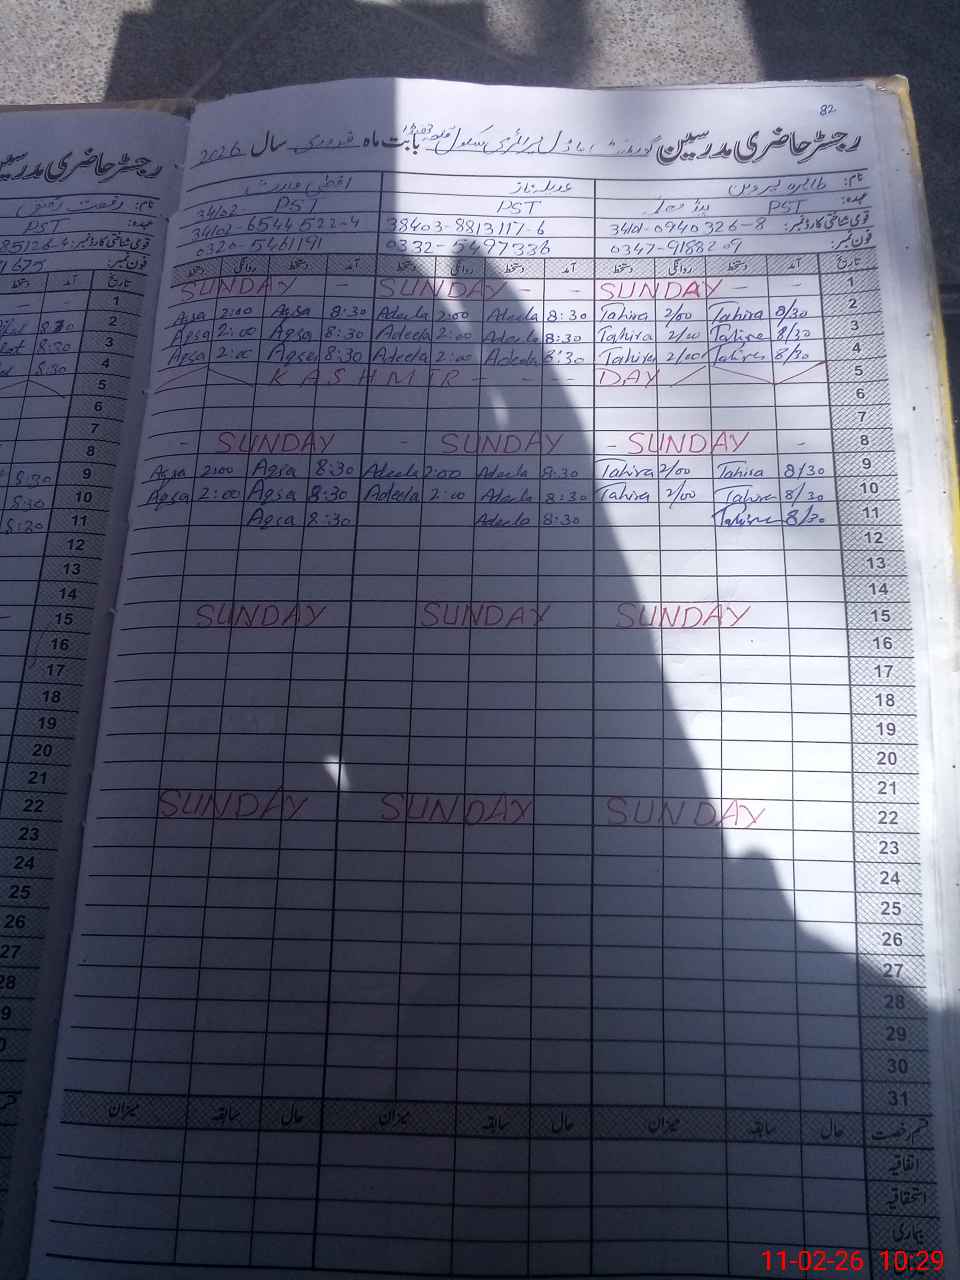 82
رجسٹر حاضری مدرسین گورنمنٹ ماڈل پرائمری سکول بابت ماہ فروری سال 2026
نام: طاہرہ پروین عدیلہ ناز
عہدہ: PST PST PST
قومی شناختی کارڈ نمبر: 34101-0940326-8 38403-8813117-6 34102-6544522-4
فون نمبر: 0347-9188209 0332-5497336 0320-5461191
تاریخ آمد دستخط روانگی دستخط آمد دستخط روانگی دستخط آمد دستخط روانگی دستخط
SUNDAY - SUNDAY - - SUNDAY - - 1
Aqsa 2:00 Aqsa 8:30 Adeela 2:00 Adeela 8:30 Tahira 2/00 Tahira 8/30 2
Aqsa 2:00 Aqsa 8:30 Adeela 2:00 Adeela 8:30 Tahira 2/00 Tahira 8/30 3
Aqsa 2:00 Aqsa 8:30 Adeela 2:00 Adeela 8:30 Tahira 2/00 Tahira 8/30 4
KASHMIR - - - - DAY 5
6
7
- SUNDAY - SUNDAY - SUNDAY - 8
Aqsa 2:00 Aqsa 8:30 Adeela 2:00 Adeela 8:30 Tahira 2/00 Tahira 8/30 9
Aqsa 2:00 Aqsa 8:30 Adeela 2:00 Adeela 8:30 Tahira 2/00 Tahira 8/30 10
Aqsa 8:30 Adeela 8:30 Tahira 8/30 11
12
13
14
SUNDAY SUNDAY SUNDAY 15
16
17
18
19
20
21
SUNDAY SUNDAY SUNDAY 22
23
24
25
26
27
28
29
30
31
قسم رخصت حال سابقہ میزان حال سابقہ میزان حال سابقہ میزان
اتفاقیہ
استحقاقیہ
بیماری
رجسٹر حاضری مدرسین
نام:
عہدہ: PST
قومی شناختی کارڈ نمبر: 85126-4
فون نمبر: 1675
تاریخ آمد دستخط
1
8:30 2
8:30 3
8:30 4
5
6
7
8
8:30 9
8:30 10
8:30 11
12
13
14
15
16
17
18
19
20
21
22
23
24
25
26
27
28
11-02-26 10:29